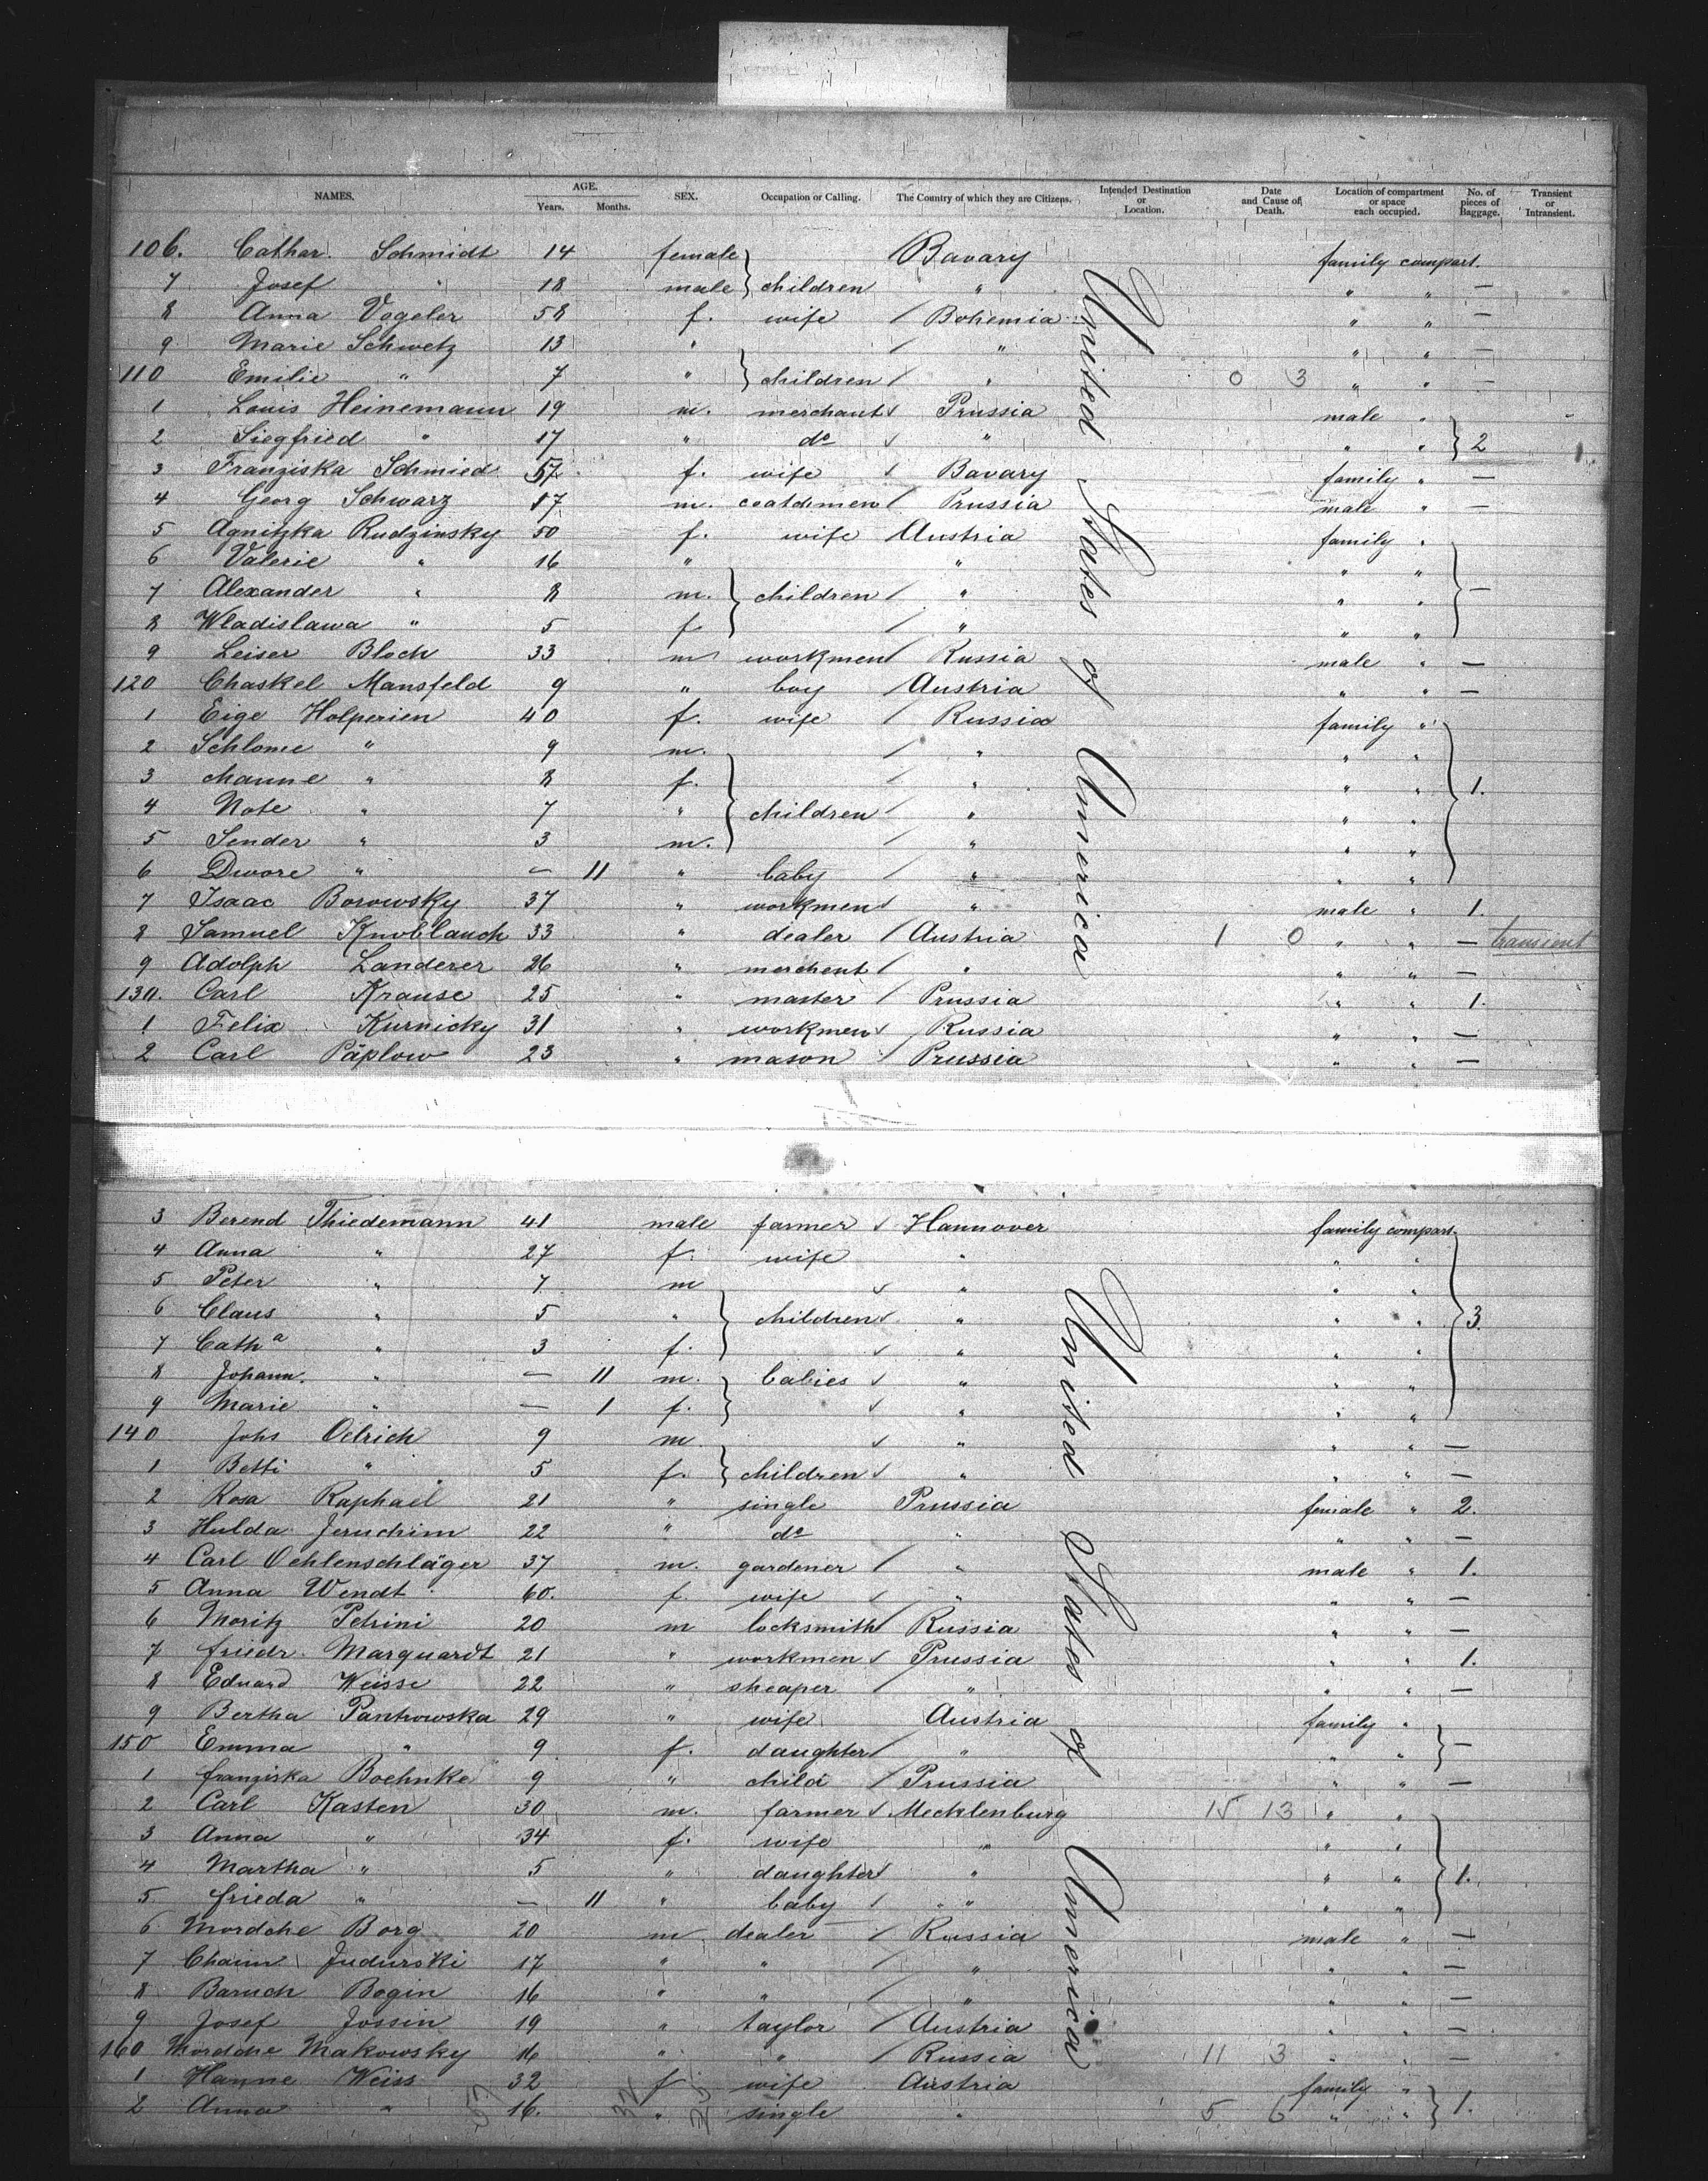 NAMES. AGE. Years. Months. SEX. Occupation or Calling. The Country of which they are Citizens. Intended Destination or Location. Date and Cause of Death. Location of compartment or space each occupied. No. of pieces of Baggage. Transient or Intransient.
106. Cathar. Schmidt 14 female Bavary family compart.
7 Josef " 18 male } children " " " —
8 Anna Vogeler 58 f. wife / Bohemia " " —
9 Marie Schwetz 13 " / " " " —
110 Emilie " 7 " } children / " 0 3 " " —
1 Louis Heinemann 19 m. merchant ✓ Prussia male "
2 Siegfried " 17 " do ✓ " " " } 2
3 Franziska Schmied 57 f. wife ✓ Bavary family " —
4 Georg Schwarz 17 m. / Prussia male " —
5 Agnitzka Rudzinsky 50 f. wife Austria family "
6 Valerie " 16 " " " "
7 Alexander " 8 m. } children / " " " } —
8 Wladislawa " 5 f / " " "
9 Leiser Bloch 33 m workmen / Russia male " —
120 Chaskel Mansfeld 9 " boy / Austria " " —
1 Eige Holperien 40 f. wife / Russia family "
2 Schlome " 9 m. / " " "
3 Channe " 8 f. / " " " } 1.
4 Note " 7 " } children / " " "
5 Sender " 3 m. / " " "
6 Dwore " — 11 " baby / " " "
7 Isaac Borowsky 37 " workmen ✓ " male " 1.
8 Samuel Knoblauch 33 " dealer / Austria 1 0 " " — transient
9 Adolph Landerer 26 " merchent / " " " —
130. Carl Krause 25 " master / Prussia " " 1.
1 Felix Kurnicky 31 " workmen ✓ Russia " " —
2 Carl Päplow 23 " mason / Prussia " " —
United States of America
3 Berend Thiedemann 41 male farmer ✓ Hannover family compart.
4 Anna " 27 f. wife " " "
5 Peter " 7 m ✓ " " "
6 Claus " 5 " } children ✓ " " " } 3.
7 Catha " 3 f. ✓ " " "
8 Johann. " — 11 m. } babies ✓ " " "
9 Marie " — 1 f. ✓ " " "
140 Johs Oelrich 9 m. ✓ " " " —
1 Betti " 5 f. } children ✓ " " " —
2 Rosa Raphael 21 " single Prussia female " 2.
3 Hulda Jeruchim 22 " do " " " —
4 Carl Oehlenschläger 37 m. gardener / " male " 1.
5 Anna Wendt 60. f. wife ✓ " " " —
6 Moritz Petrini 20 m locksmith / Russia " " —
7 Friedr. Marquardt 21 " workmen ✓ Prussia " " 1.
8 Eduard Weisse 22 " sheaper / " " " —
9 Bertha Pantrowska 29 " wife Austria family "
150 Emma " 9 f. daughter / " " " } —
1 Franziska Boehnke 9 " child / Prussia " " —
2 Carl Kasten 30 m. farmer ✓ Mecklenburg 15 13 " "
3 Anna " 34 f. wife " " "
4 Martha " 5 " daughter ✓ " " " } 1.
5 Frieda " — 11 " baby / " " "
6 Mordche Borg 20 m dealer / Russia male " —
7 Chaim Judurski 17 " " / " " " —
8 Baruch Bogin 16 " " / " " " —
9 Josef Jossin 19 " taylor / Austria " " —
160 Mordche Makowsky 16 " " / Russia 11 3 " " —
1 Hanne Weiss 32 f wife Austria family "
2 Anna " 16. " single " 5 6 " " } 1.
United States of America